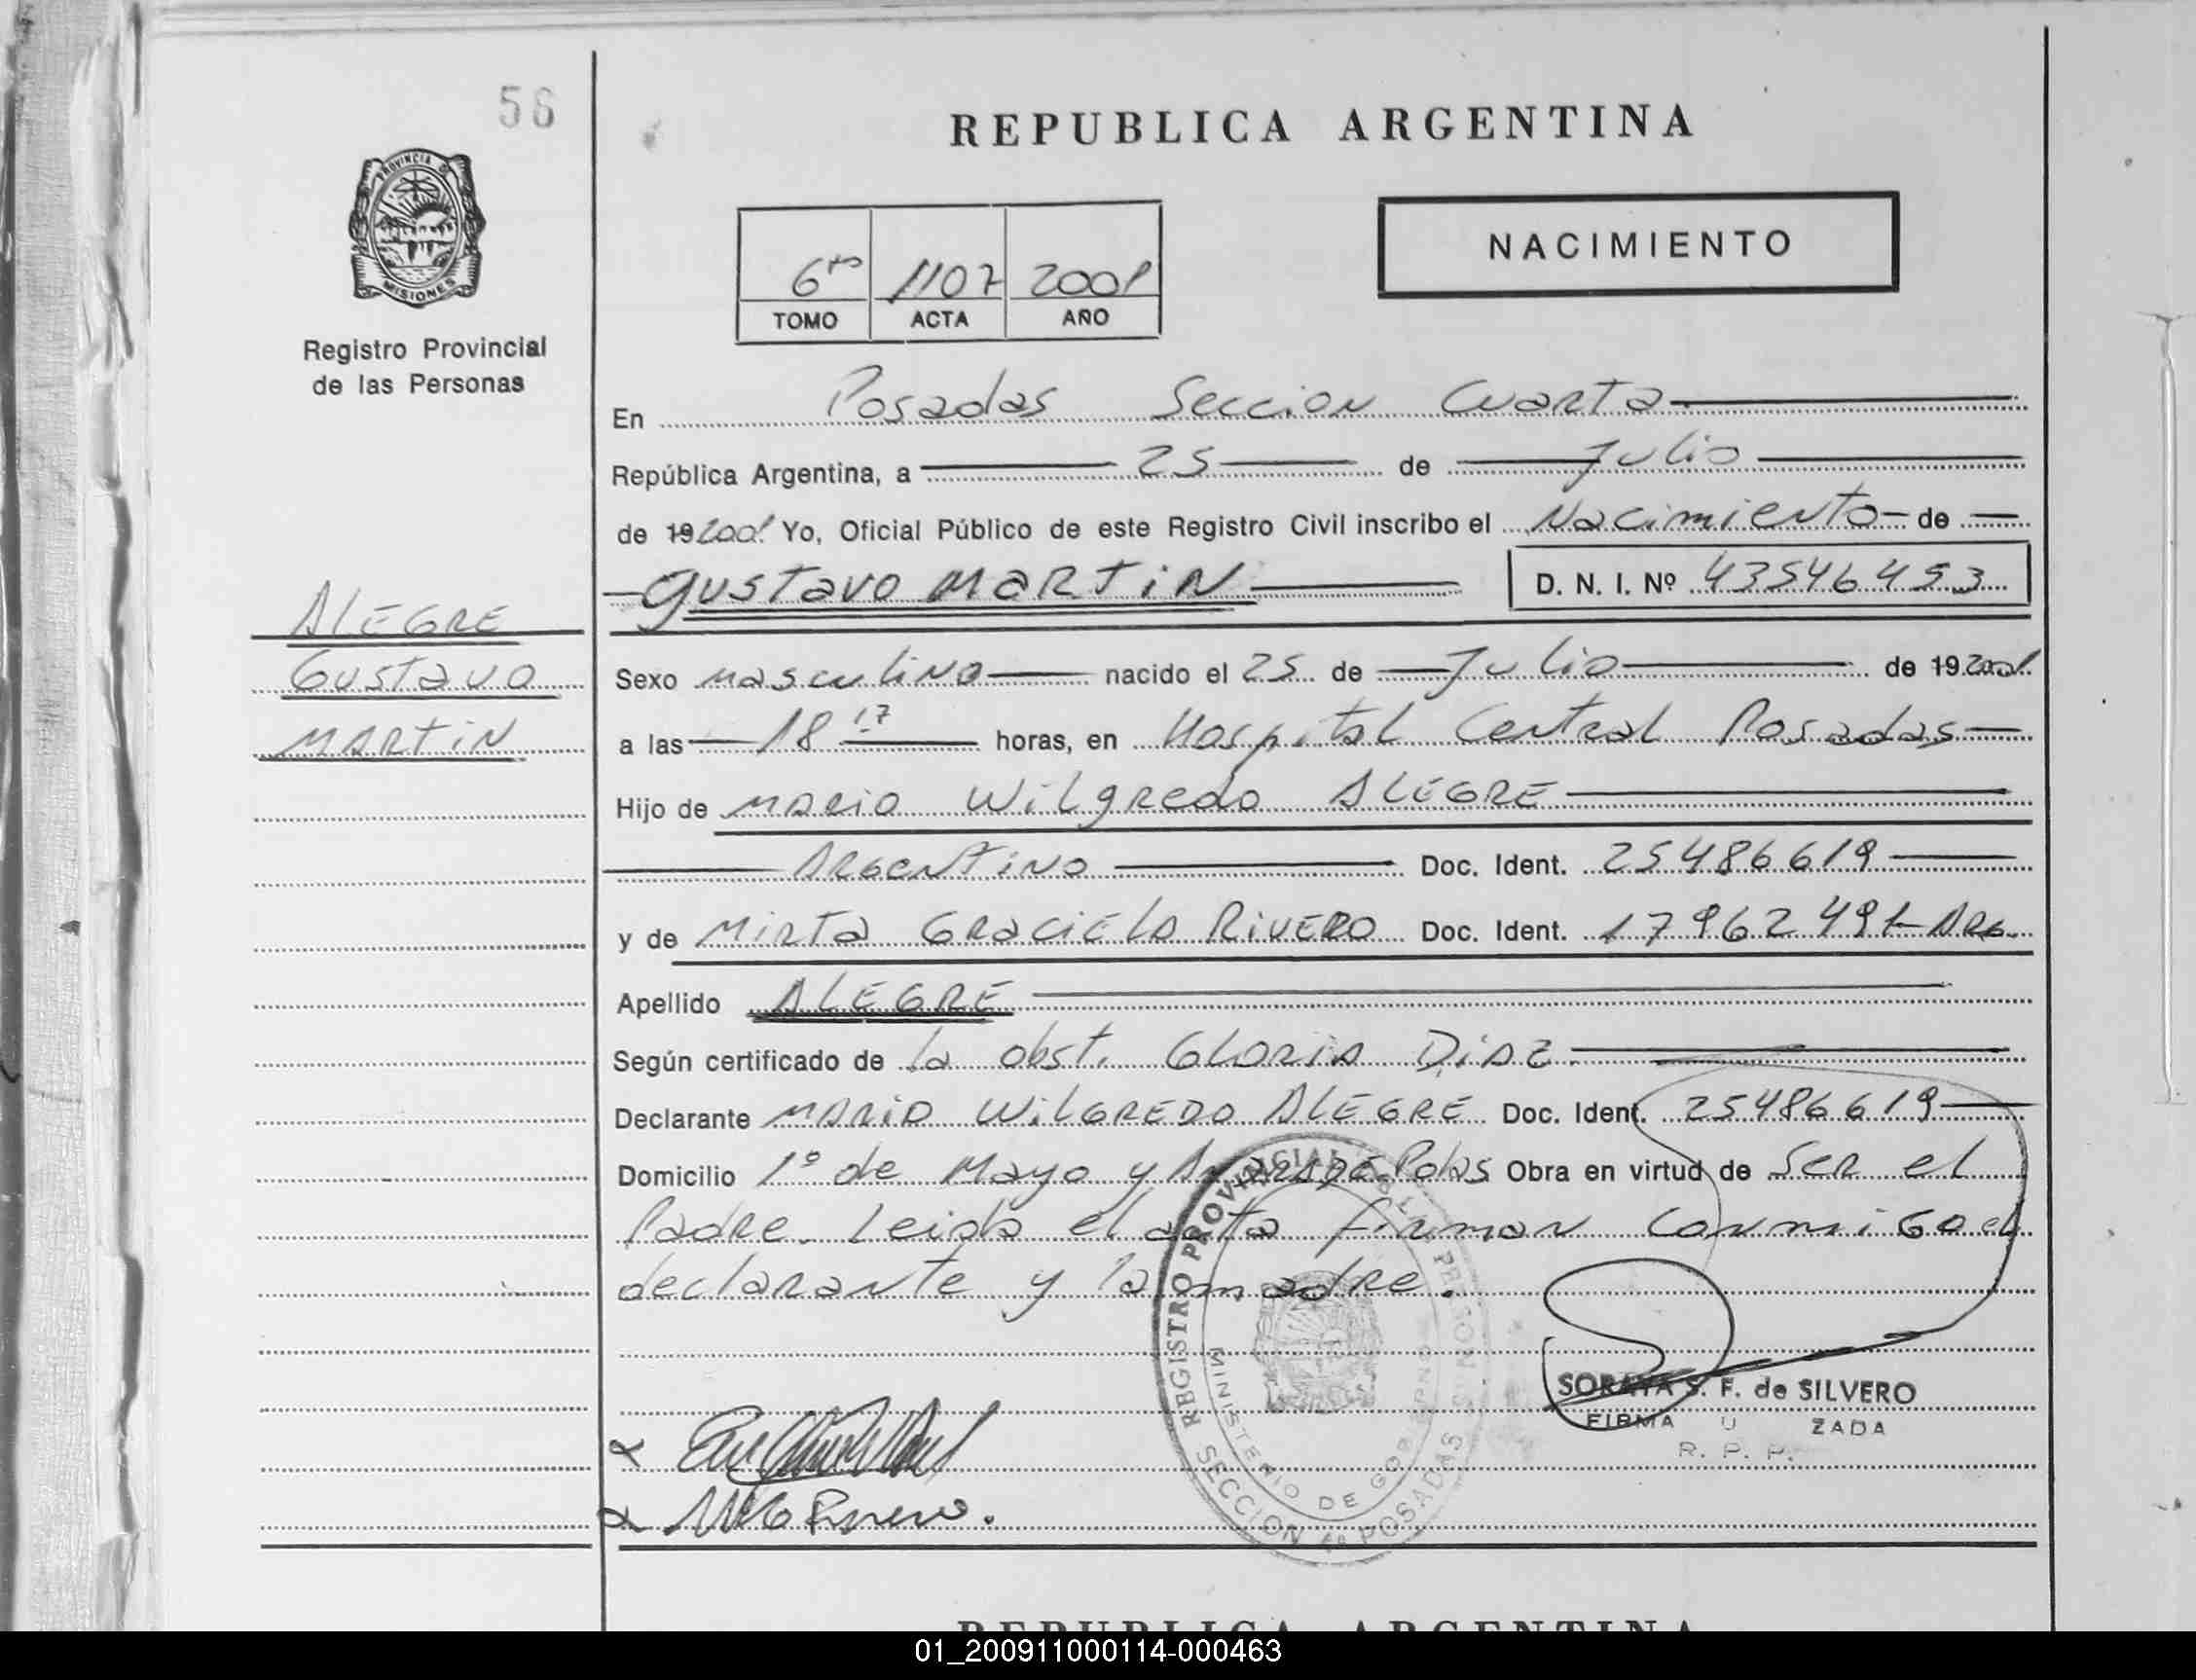 56
REPUBLICA ARGENTINA
PROVINCIA D
MISIONES
Registro Provincial
de las Personas
NACIMIENTO
6to 1107 2001
TOMO ACTA AÑO
En Posadas Seccion Cuarta
República Argentina, a 25 de Julio
de 192001 Yo, Oficial Público de este Registro Civil inscribo el Nacimiento de
Gustavo Martin D. N. I. Nº 43546453
ALEGRE
Gustavo
Martin
Sexo masculino nacido el 25 de Julio de 192001
a las 18 17 horas, en Hospital Central Posadas
Hijo de Mario Wilgredo ALEGRE
Argentino Doc. Ident. 25486619
y de Mirta Graciela Rivero Doc. Ident. 17962491 Arg.
Apellido ALEGRE
Según certificado de la obst. Gloria Diaz
Declarante Mario Wilgredo ALEGRE Doc. Ident. 25486619
Domicilio 1º de Mayo y Pdas Obra en virtud de Ser el
Padre. Leida el acta firman conmigo el
declarante y la madre.
REGISTRO PROVINCIAL DE LAS PERSONAS
MINISTERIO DE GOBIERNO
SECCION 4a POSADAS
SORAYA S. F. de SILVERO
FIRMA U ZADA
R. P. P.
M G Rivero.
REPUBLICA ARGENTINA
01_200911000114-000463